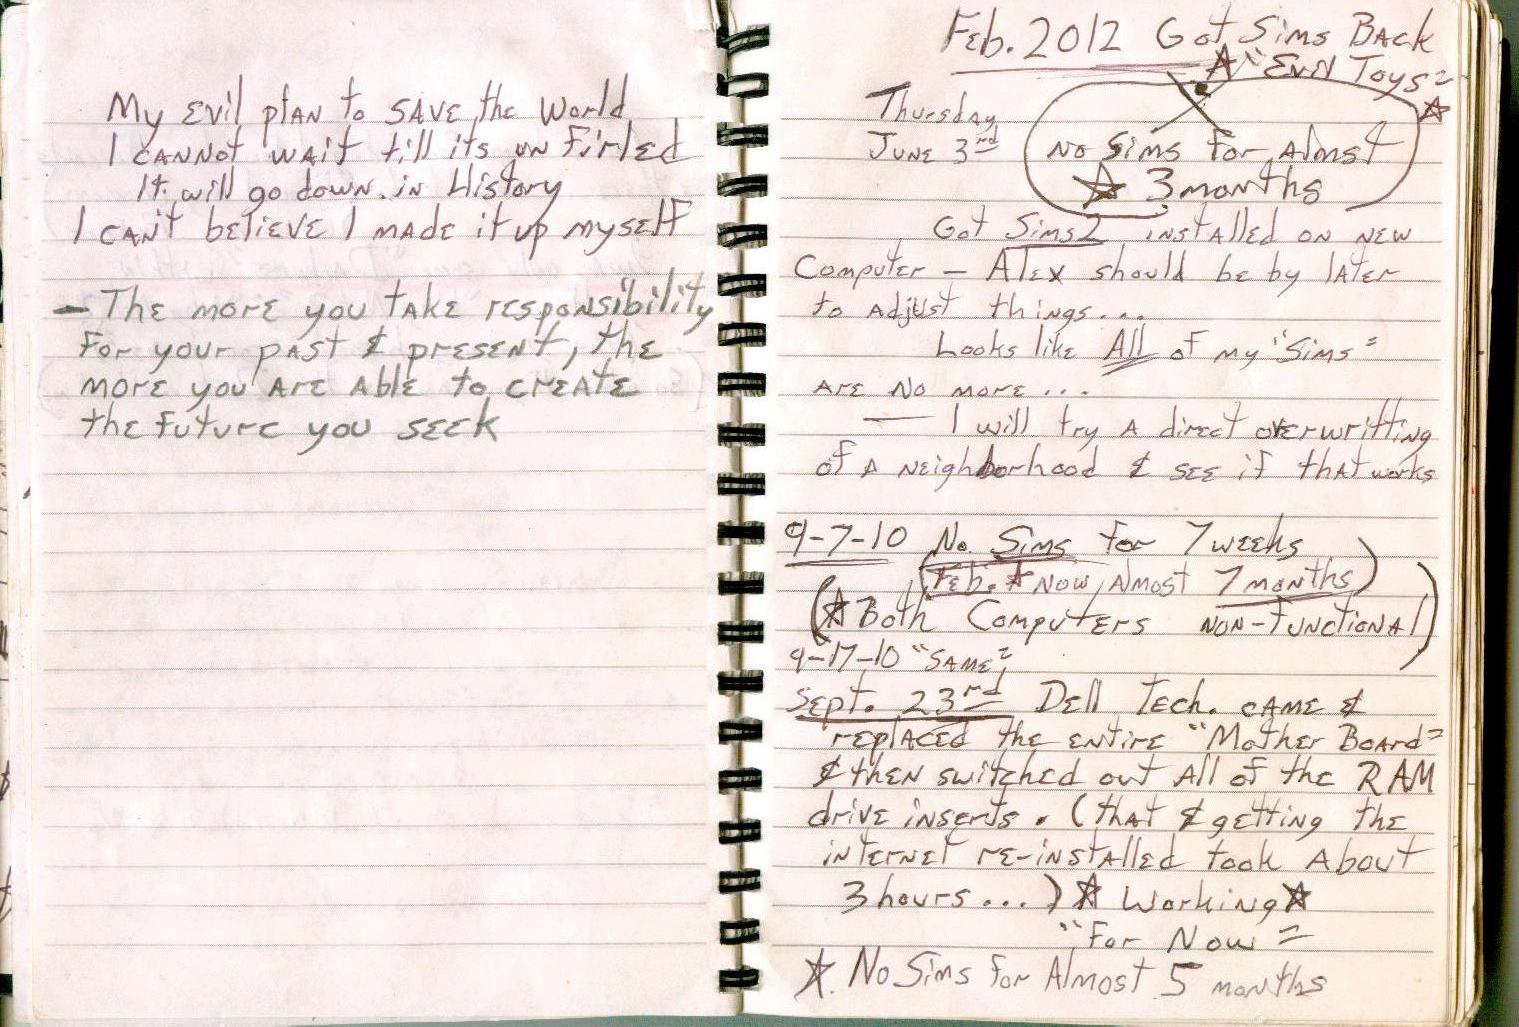 My evil plan to save the World
I cannot wait till its un firled
It will go down in History
I can't believe I made it up myself
- The more you take responsibility
for your past & present, the
more you are able to create
the future you seek
Feb. 2012 Got Sims Back
☆ "Evil Toys" ☆
Thursday
June 3rd
no sims for almst
☆ 3 months
Got Sims 2 installed on new
Computer - Alex should be by later
to adjust things...
Looks like All of my "Sims"
are no more...
— I will try a direct overwritting
of a neighborhood & see if that works
9-7-10 No Sims for 7 weeks
(Feb. ☆ Now, almost 7 months)
(☆ Both Computers non-functional)
9-17-10 "Same"
Sept. 23rd Dell Tech. came &
replaced the entire "Mother Board"
& then switched out all of the RAM
drive inserts. (that & getting the
internet re-installed took about
3 hours...) ☆ Working ☆
"For Now"
☆. No Sims for Almost 5 months